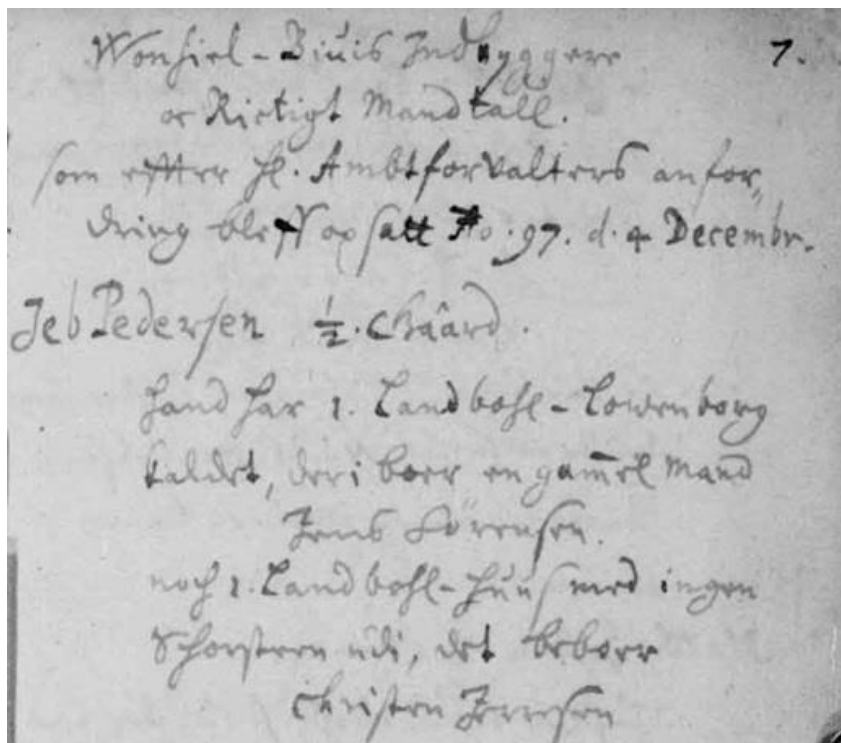 Wonsiel-Biuis Indbyggere 7.
or Rictigt Mandtall.
som effter hl. Ambtforvalters anfor„
dring bleff opsatt Ao. 97. d. 4 Decembr.
Jeb Pedersen 1/2. Gaard.
hand har 1. Landbohl-Lowenborg
kaldet, deri boer en gam̄el Mand
Jens Sörensen.
noch 1. Landbohl-huus med ingen
Schorsteen udi, det beboer
Christen Jensen